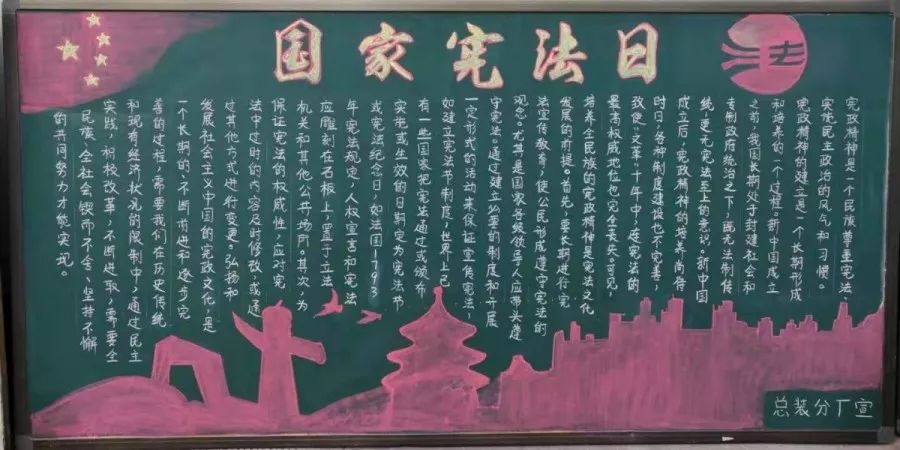 国家宪法日
法
宪政精神是一个民族尊重宪法、
实施民主政治的风气和习惯。
宪政精神的建立是一个长期形成
和培养的一个过程。新中国成立
之前,我国长期处于封建社会和
专制政府统治之下,既无法制传
统,更无宪法至上的意识。新中国
成立后,宪政精神的培养尚待
时日,各种制度建设也不完善,
致使“文革”十年中,连宪法的
最高权威地位也完全丧失。可见,
培养全民族的宪政精神是宪法文化
发展的前提。首先,要长期进行宪
法宣传教育,使公民形成遵守宪法的
观念。尤其是国家各级领导人应带头遵
守宪法。通过建立必要的制度和开展
一定形式的活动来保证宣传宪法,
如建立宪法节制度,世界上已
有一些国家把宪法通过或颁布
实施或生效的日期定为宪法节
或宪法纪念日,如法国1793
年宪法规定,人权宣言和宪法
应雕刻在石板上,置于立法
机关和其他公共场所。其次,为
保证宪法的权威性,应对宪
法中过时的内容及时修改或通
过其他方式进行变更。弘扬和
发展社会主义中国的宪政文化,是
一个长期的、不断前进和逐步完
善的过程,需要我们在历史传统
和现有经济状况的限制中,通过民主
实践,积极改革,不断进取,需要全
民族、全社会锲而不舍、坚持不懈
的共同努力才能实现。
总装分厂宣